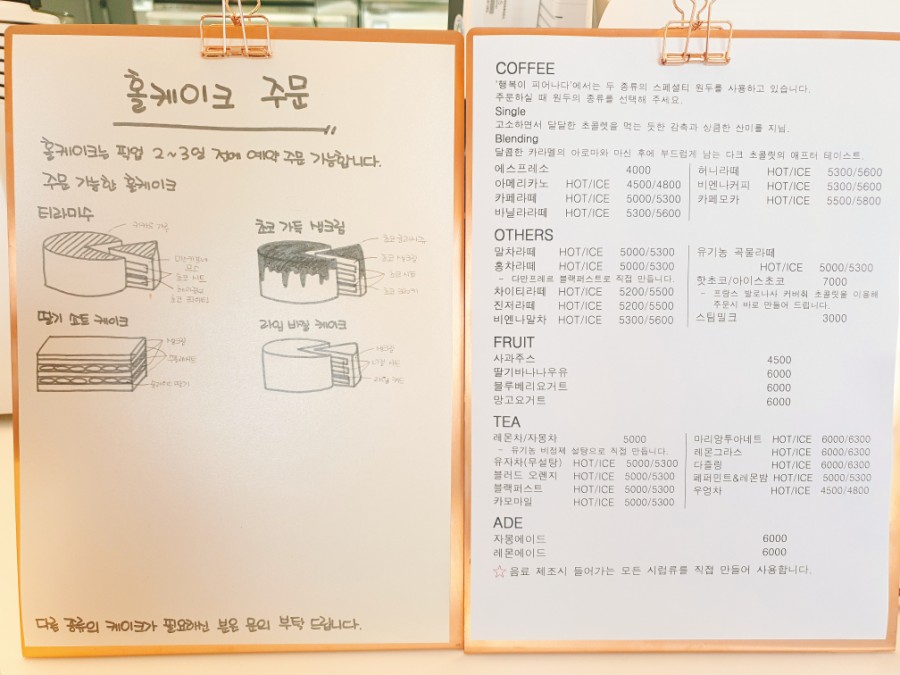 홀케이크 주문
홀케이크는 픽업 2~3일 전에 예약 주문 가능합니다.
주문 가능한 홀케이크
티라미수
초코 가득 생크림
초코 시트
생크림
초코 시트
딸기 쇼트 케이크
생크림
생크림
다른 종류의 케이크가 필요하신 분은 문의 부탁 드립니다.
COFFEE
'행복이 피어나다'에서는 두 종류의 스페셜티 원두를 사용하고 있습니다.
주문하실 때 원두의 종류를 선택해 주세요.
Single
고소하면서 달달한 초콜렛을 먹는 듯한 감촉과 상큼한 산미를 지님.
Blending
달콤한 카라멜의 아로마와 마신 후에 부드럽게 남는 다크 초콜릿의 애프터 테이스트.
에스프레소 4000
아메리카노 HOT/ICE 4500/4800
카페라떼 HOT/ICE 5000/5300
바닐라라떼 HOT/ICE 5300/5600
허니라떼 HOT/ICE 5300/5600
비엔나커피 HOT/ICE 5300/5600
카페모카 HOT/ICE 5500/5800
OTHERS
말차라떼 HOT/ICE 5000/5300
홍차라떼 HOT/ICE 5000/5300
- 다만프레르 블랙퍼스트로 직접 만듭니다.
차이티라떼 HOT/ICE 5200/5500
진저라떼 HOT/ICE 5200/5500
비엔나말차 HOT/ICE 5300/5600
유기농 곡물라떼
HOT/ICE 5000/5300
핫초코/아이스초코 7000
- 프랑스 발로나사 커버춰 초콜릿을 이용해
주문시 바로 만들어 드립니다.
스팀밀크 3000
FRUIT
사과주스 4500
딸기바나나우유 6000
블루베리요거트 6000
망고요거트 6000
TEA
레몬차/자몽차 5000
- 유기농 비정제 설탕으로 직접 만듭니다.
유자차(무설탕) HOT/ICE 5000/5300
블러드 오렌지 HOT/ICE 5000/5300
블랙퍼스트 HOT/ICE 5000/5300
카모마일 HOT/ICE 5000/5300
마리앙투아네트 HOT/ICE 6000/6300
레몬그라스 HOT/ICE 6000/6300
다즐링 HOT/ICE 6000/6300
페퍼민트&레몬밤 HOT/ICE 5000/5300
우엉차 HOT/ICE 4500/4800
ADE
자몽에이드 6000
레몬에이드 6000
☆음료 제조시 들어가는 모든 시럽류를 직접 만들어 사용합니다.